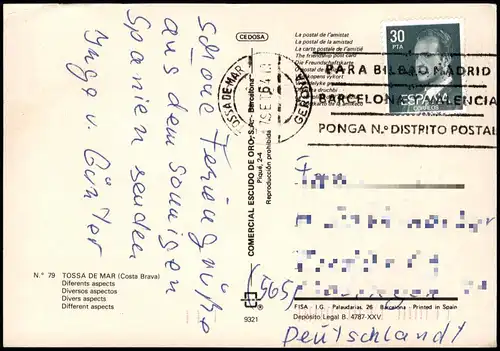 CEDOSA
La postal de l'amistat
La postal de la amistad
La carte postale de l'amitié
The friendship post card
Die Freundschaftskarte
30
PTA
ESPAÑA
CORREOS
TOSSA DE MAR
GERONA
PARA BILBAO MADRID
BARCELONA VALENCIA
PONGA N.º DISTRITO POSTAL
schöne Feriengrüße
aus dem sonnigen
Spanien senden
Inge u. Günter
COMERCIAL ESCUDO DE ORO, S.A. - Barcelona
Piqué, 2-4
Reproducción prohibida
Nº 79 TOSSA DE MAR (Costa Brava)
Diferents aspectes
Diversos aspectos
Divers aspects
Different aspects
9321
®
5595
FISA - I.G. Palaudarias, 26 - Barcelona - Printed in Spain
Depósito Legal B. 4787-XXV.
Deutschland